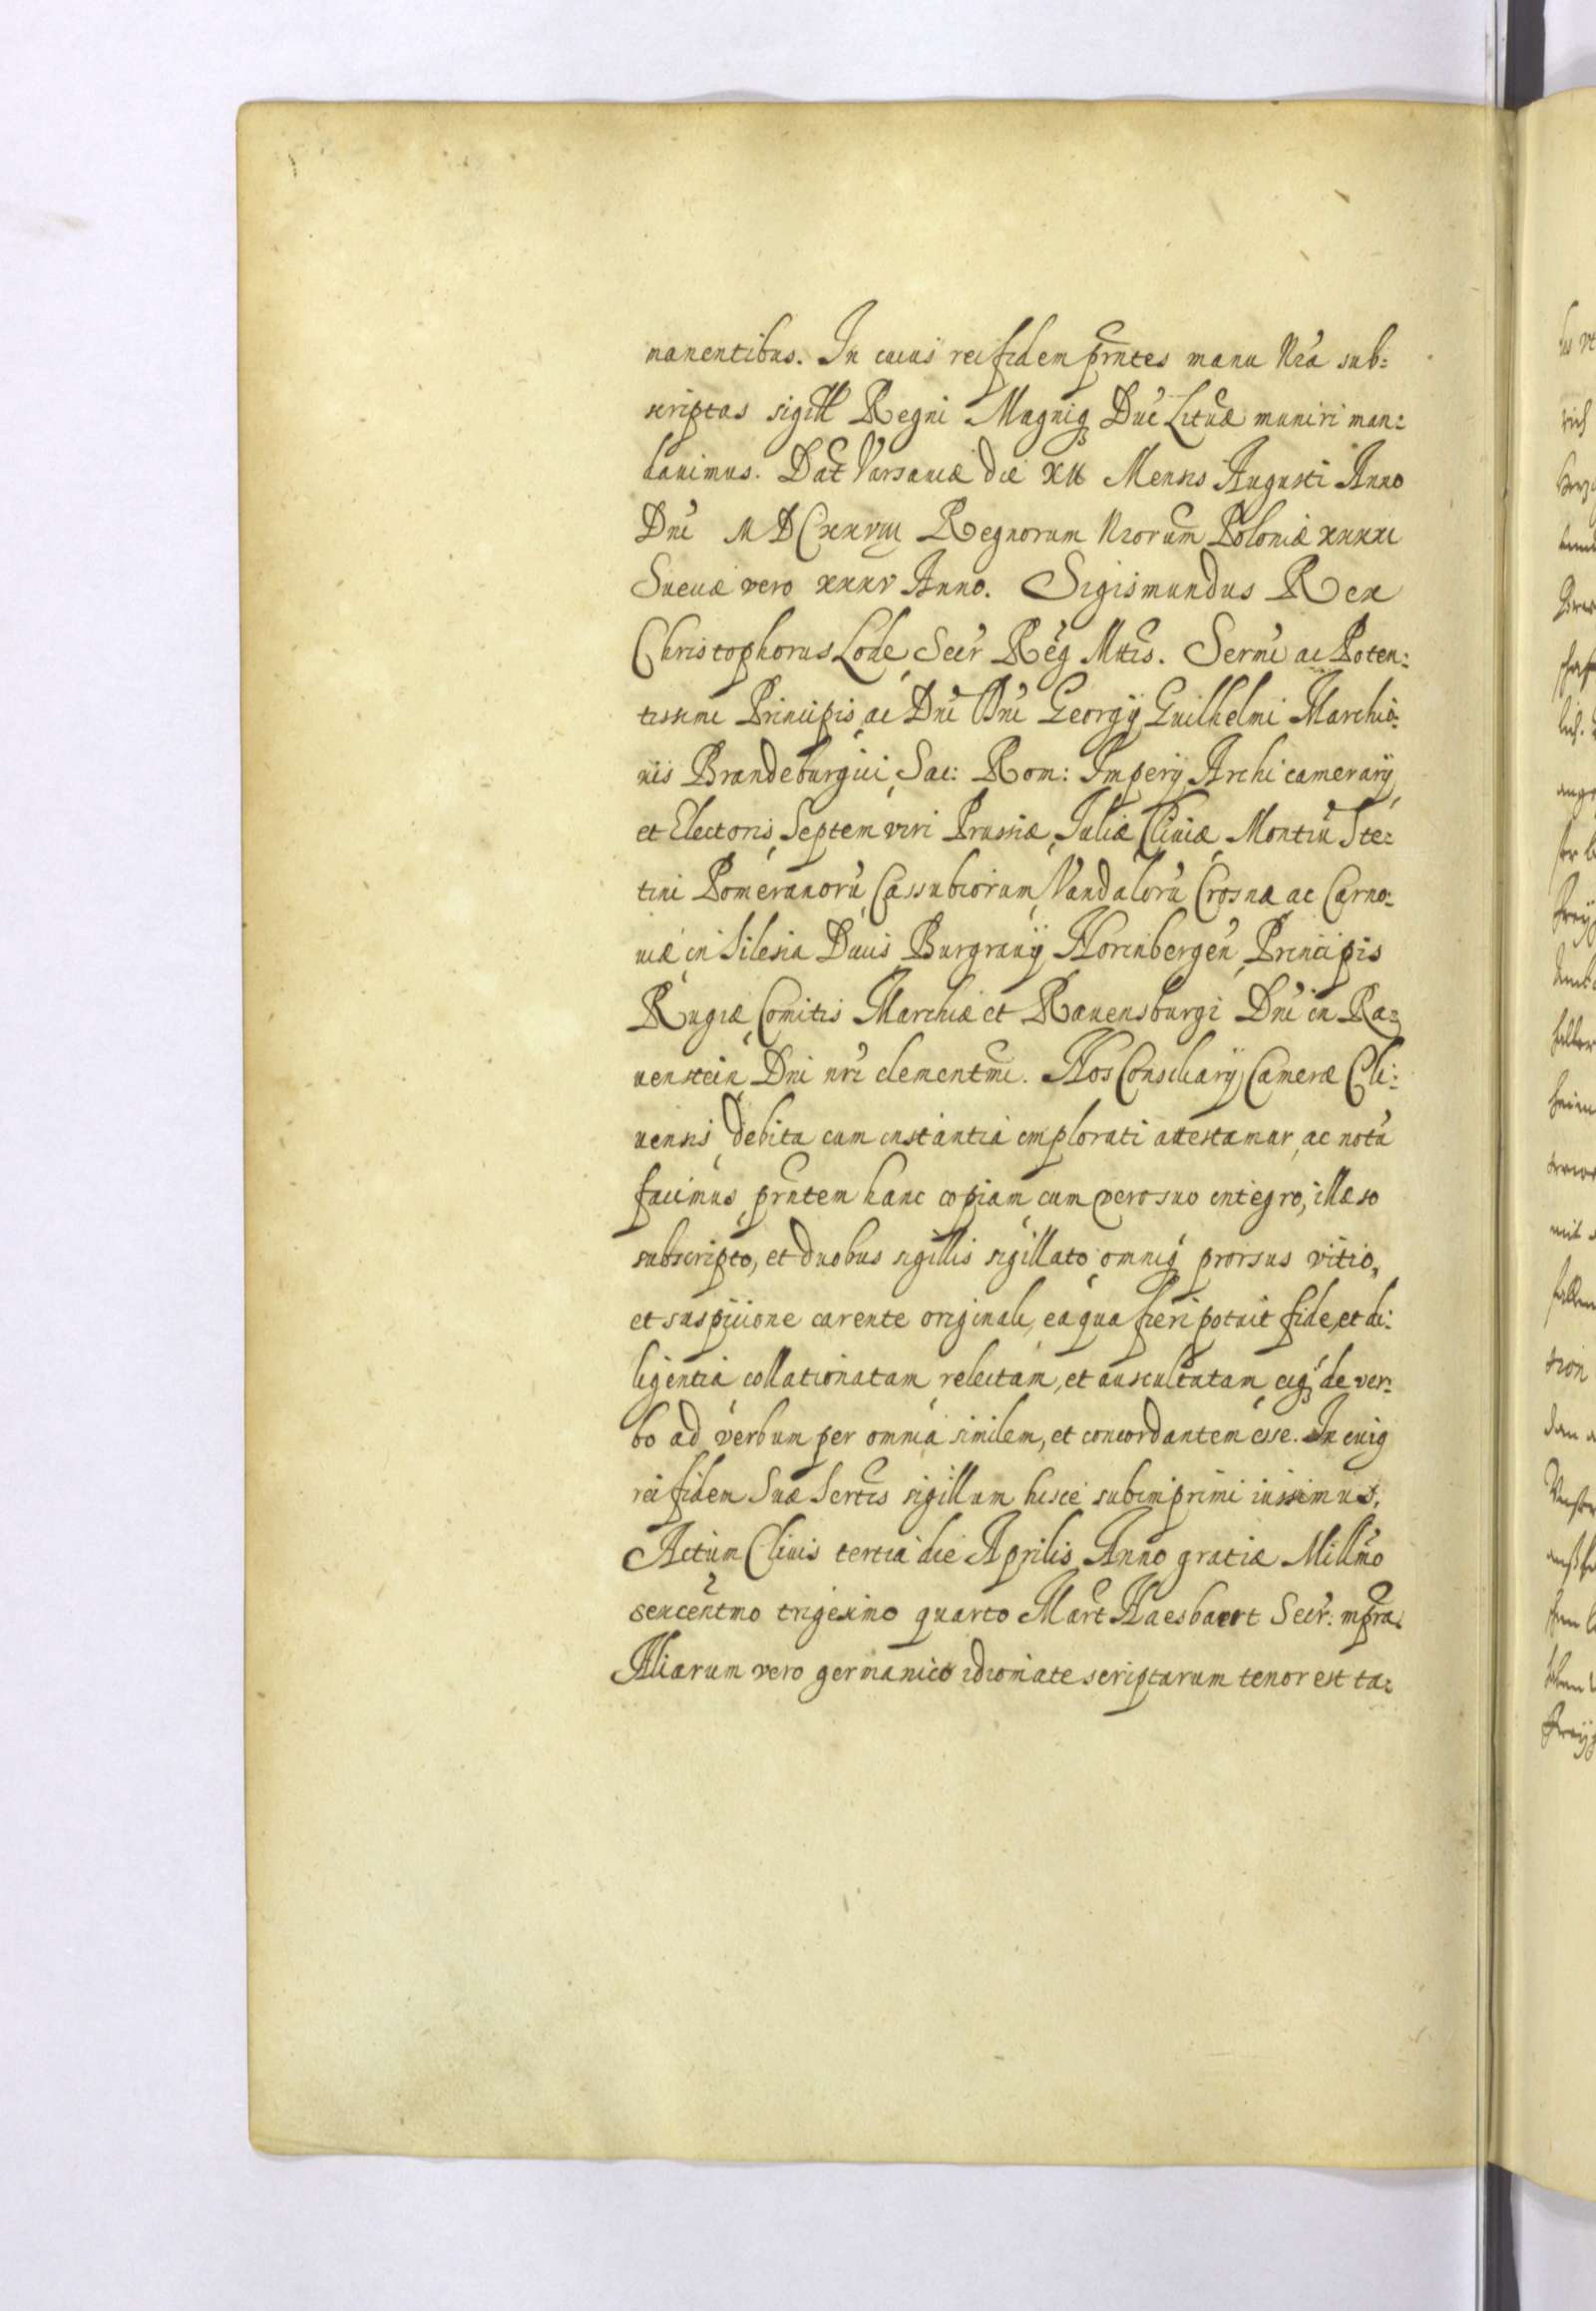 nanentibus. In cuius rei fidem prntes manu Nra sub:
scriptas sigill Regni Magniq Duc Lituæ muniri man:
davimus. Dat Varsaviæ die XII Mensis Augusti Anno
Dni MDCXXVIII Regnorum Nrorum Poloniæ XXXXI
Sueciæ vero XXXV Anno. Sigismundus Rex
Christophorus Lode, Secr Reg Mttis. Sermi ac Poten:
tissimi Principis, ac Dni Dni Georgij Guilhelmi Marchio:
nis Brandeburgici, Sac: Rom: Imperij Archicamerarij,
et Electoris, Septemviri Prussiæ, Juliæ Cliviæ, Montiu Ste:
tini Pomeranoru, Cassubiorum, Vandaloru Crosnæ ac Carno:
viæ, in Silesia Ducis Burgravij Norinbergen, Principis
Rugiæ, Comitis Marchiæ et Ravensburgi Dni in Ra:
venstein, Dni nri clementmi. Nos Consiliarij Cameræ Cli:
vensis, debita cum instantia implorati attestamur, ac notu
facimus, prntem hanc copiam, cum vero suo integro, illæso
subscripto, et duobus sigillis sigillato, omniq prorsus vitio,
et suspicione carente originali, ea qua fieri potuit fide, et di:
ligentia, collationatam, relectam, et auscultatam, eiq de ver:
bo ad verbum per omnia similem, et concordantem esse. In cuiq
rei fidem Suæ Sertis sigillum hisce subimprimi iussimus.
Actum Clivis tertia die Aprilis, Anno gratiæ Millmo
sexcentmo trigesimo quarto Mart Haesbaert Secr: mpra.
Aliarum vero germanico idiomate scriptarum tenor est ta: